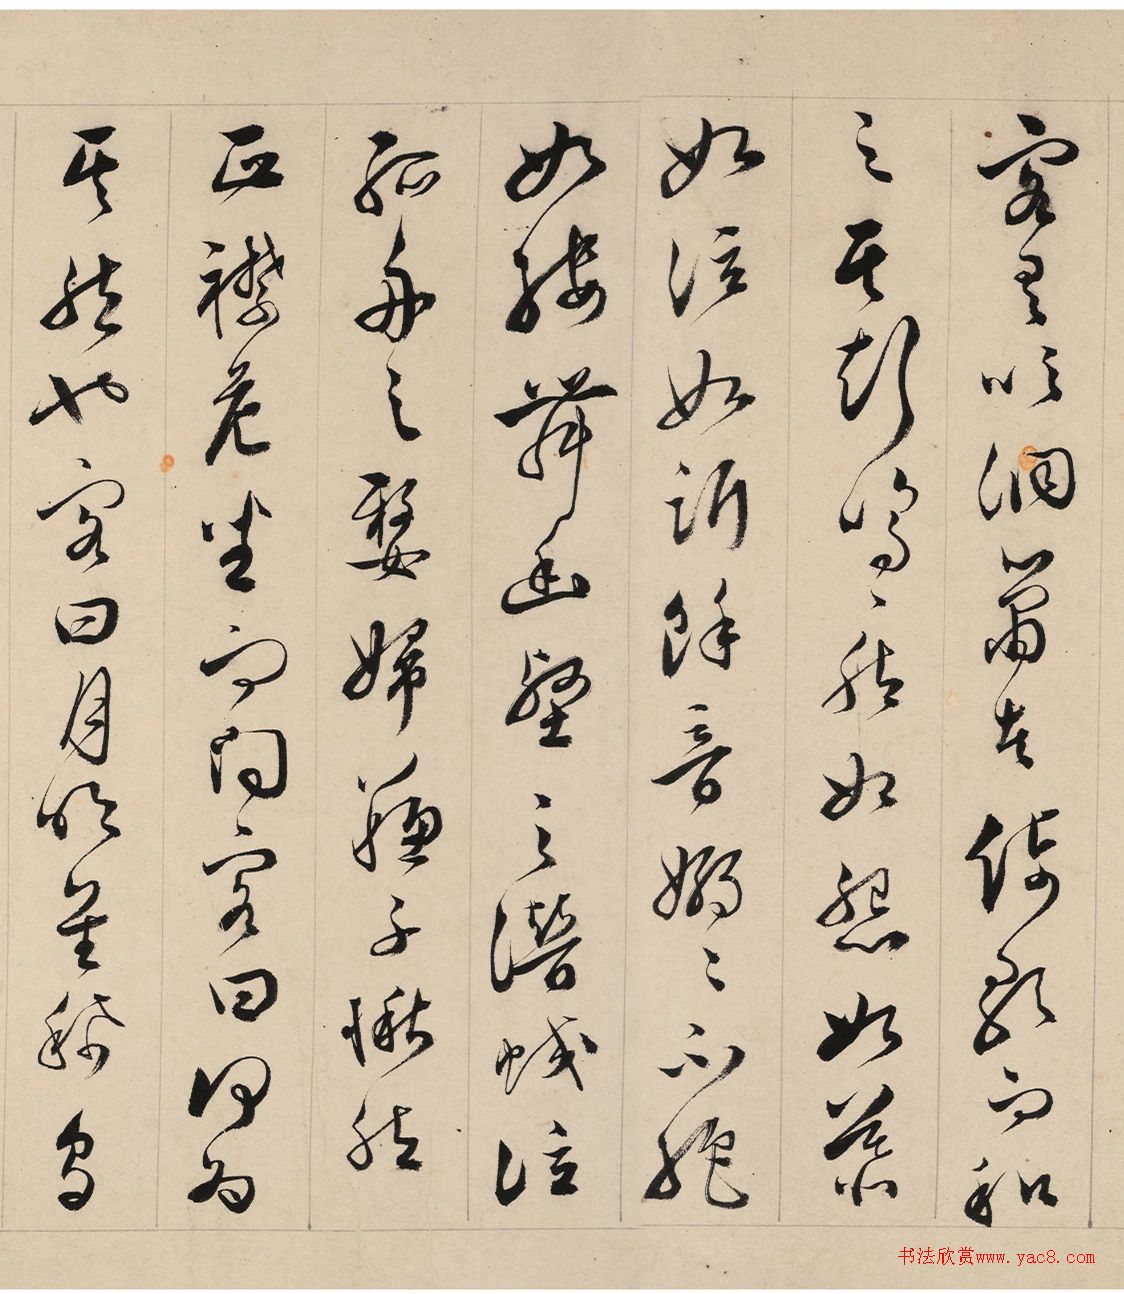 客有吹洞簫者倚歌而和
之其聲嗚〻然如怨如慕
如泣如訴餘音嫋〻不絕
如縷舞幽壑之潛蛟泣
孤舟之嫠婦蘇子愀然
正襟危坐而問客曰何為
其然也客曰月明星稀烏
书法欣赏www.yac8.com